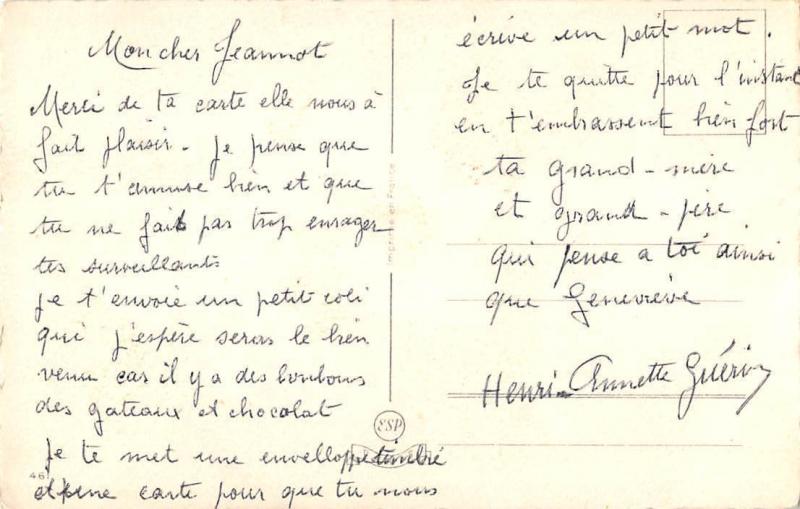 Mon cher Jeannot
Merci de ta carte elle nous à
fait plaisir - Je pense que
tu t'amuse bien et que
tu ne fait pas trop enrager
tes surveillants
Je t'envoie un petit coli
qui j'espère seras le bien
venu car il y a des bonbons
des gateaux et chocolat
Je te met une enveloppe timbré
et une carte pour que tu nous
écrive un petit mot.
Je te quitte pour l'instant
en t'embrassent bien fort
ta grand-mère
et grand-père
qui pense a toi ainsi
que Geneviève
Henri - Annette Guérin
Imprimé en France
ESP